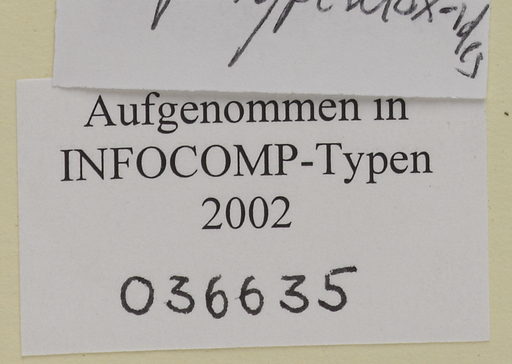 Aufgenommen in
INFOCOMP-Typen
2002
036635